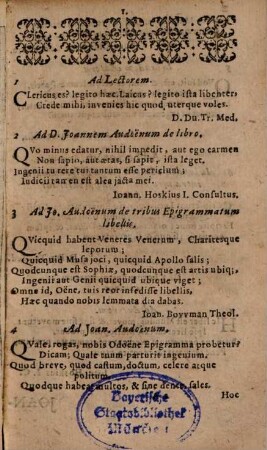 1.
1 Ad Lectorem.
CLericus es? legito hæc. Laicus? legito ista libenter:
Crede mihi, invenies hic quod, uterque voles.
D. Du. Tr. Med.
2 Ad D. Joannem Audoënum de libro,
QVo minus edatur, nihil impedit, aut ego carmen
Non sapio, aut ætas, si sapit, ista leget.
Ingenii tu rete tui tantum esse periclum;
Iudicii tamen est alea jacta mei.
Ioann. Hoskius I. Consultus.
3 Ad Jo. Audoënum de tribus Epigrammatum
libellis.
QVicquid habent Veneres Venerum, Charitesque
leporum;
Quicquid Musa joci, quicquid Apollo salis;
Quodcunque est Sophiæ, quodcunque est artis ubiq;
Ingenii aut Genii quicquid ubique viget;
Omne id, Oëne, tuis reor insedisse libellis,
Hæc quando nobis lemmata dia dabas.
Ioan. Boyvman Theol.
4 Ad Joan. Audoënum,
QVale, rogas, nobis Odoëne Epigramma probetur?
Dicam; Quale tuum parturit ingenium.
Quod breve, quod castum, doctum, celere atque
politum
Quodque habeat multos, & sine dente, sales.
Hoc
Bayerische
Staatsbibliothek
München